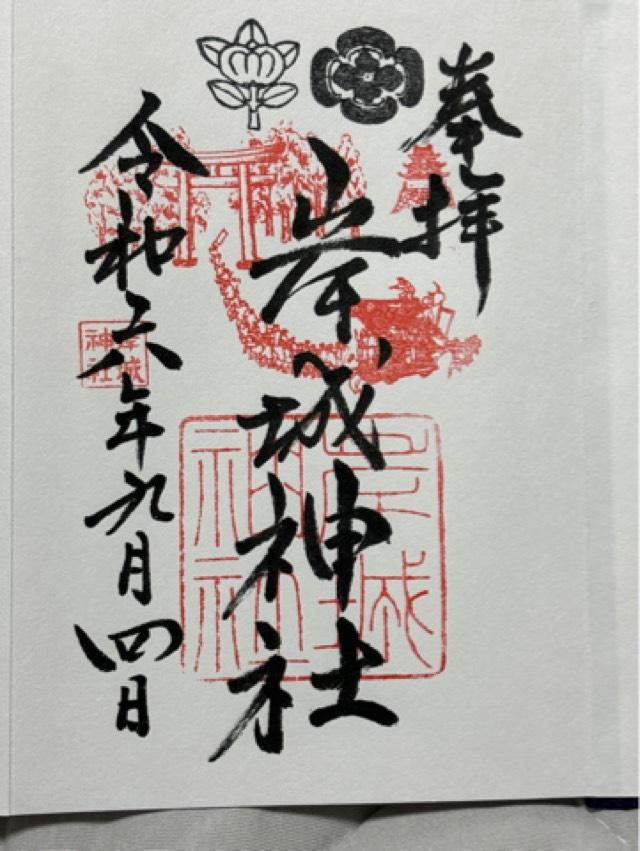 奉拝
岸城神社
令和六年九月四日
岸城
神社
岸城
神社